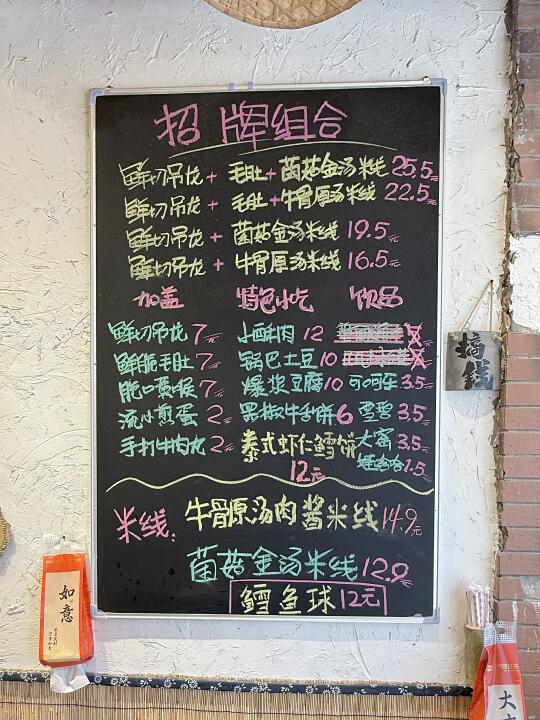 招牌组合
鲜切吊龙+毛肚+菌菇金汤米线 25.5元
鲜切吊龙+毛肚+牛骨原汤米线 22.5元
鲜切吊龙+菌菇金汤米线 19.5元
鲜切吊龙+牛骨原汤米线 16.5元
加盖 特色小吃 饮品
鲜切吊龙 7元 小酥肉 12
鲜脆毛肚 7元 锅巴土豆 10
脆口黄喉 7元 爆浆豆腐 10 可口可乐 3.5元
流心煎蛋 2元 黑椒牛舌饼 6 雪碧 3.5元
手打牛肉丸 2元 泰式虾仁鳕饼 大窑 3.5元
12元 娃哈哈 1.5元
米线: 牛骨原汤肉酱米线 14.9元
菌菇金汤米线 12.9
鳕鱼球 12元
搞钱
如意
大